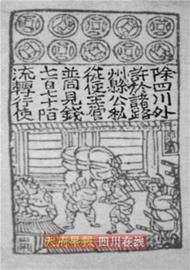 除四川外
許於諸路
州縣公私
從便主管
並同見錢
七百七十陌
流轉行使
天府早报 四川在线